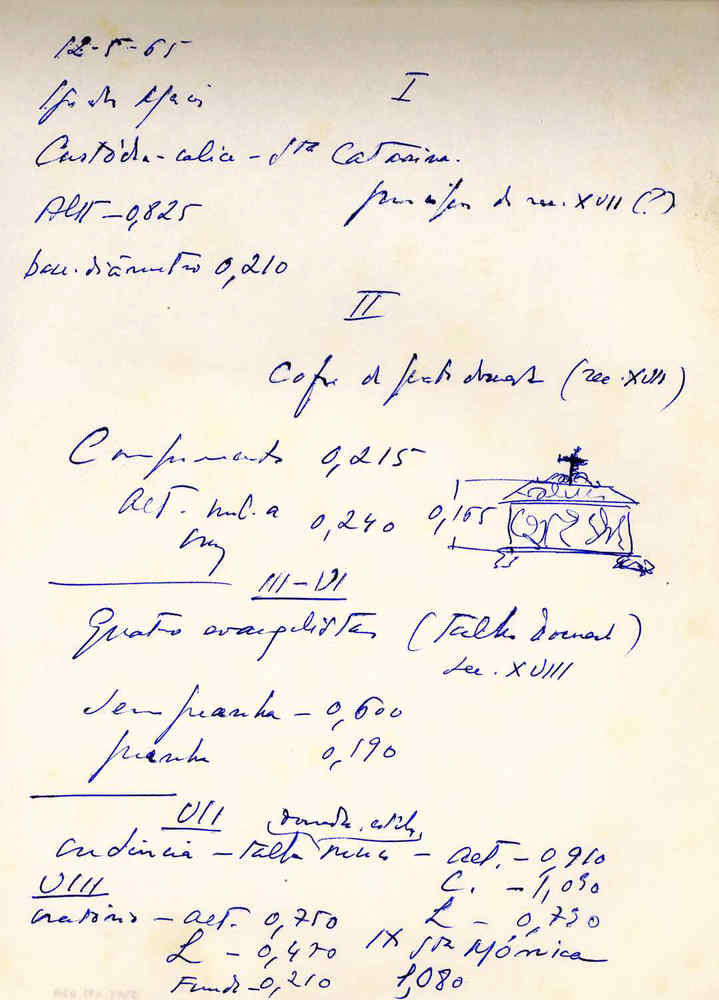 12-5-65
I
Custódia-calix - Sta Catarina.
sec. XVII (?)
Alt - 0,825
base. diâmetro 0,210
II
Cofre de prata dourada (sec. XVIII)
Comprimento 0,215
Alt. incl. a cruz 0,240
0,165
III-VI
Quatro evangelistas (talha dourada)
sec. XVIII
Sem peanha - 0,600
peanha 0,190
VII
dourada, estilo
credência - talha - alt. - 0,910
VIII
C. - 1,090
oratório - alt. 0,750
L - 0,730
L - 0,470
IX Sta Mónica
Fundo - 0,210
1,080